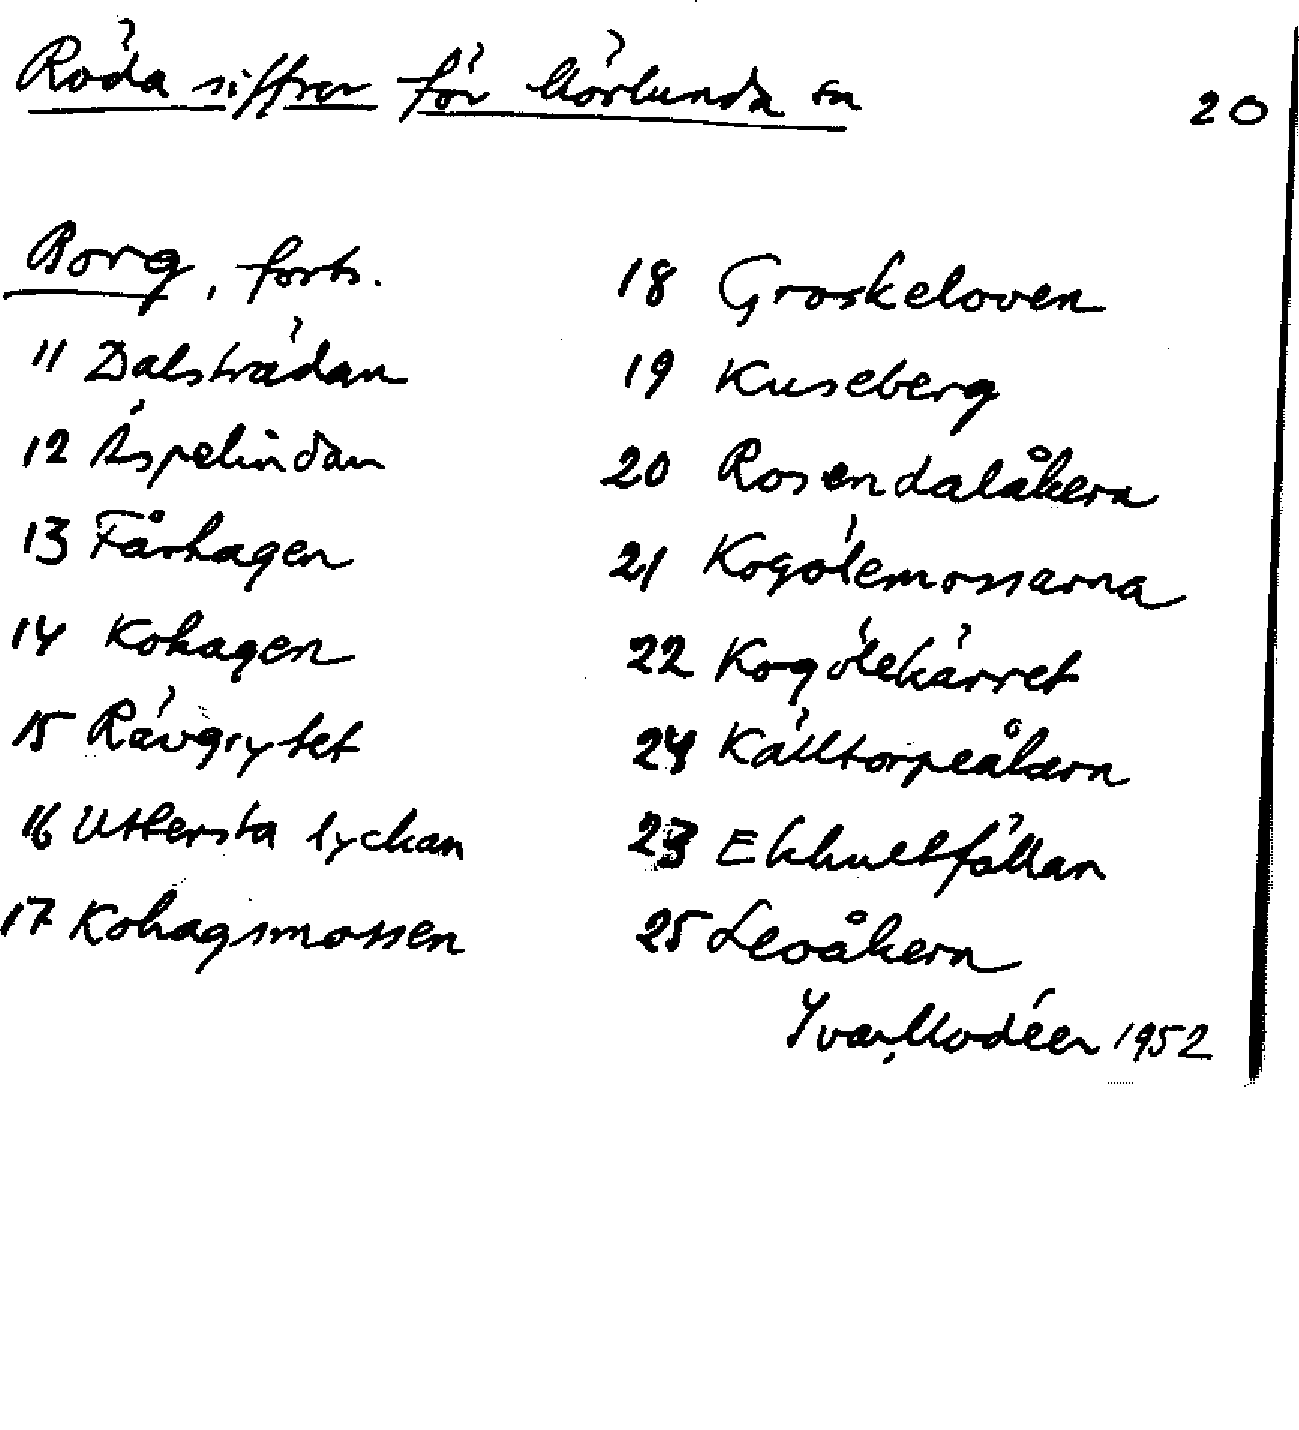 Röda siffror för Mörlunda sn
20
Borg, forts.
11 Dalsträdan
12 Äspelindan
13 Fårhagen
14 Kohagen
15 Rävgrytet
16 Uttersta lyckan
17 Kohagsmossen
18 Groskeloven
19 Kuseberg
20 Rosendalåkern
21 Kogölemossarna
22 Kogölekärret
24 Källtorpeåkern
23 Ekhultfällan
25 Leoåkern
Yvar Modéer 1952